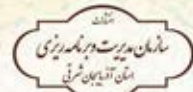 انتشارات
سازمان مدیریت و برنامه ریزی
استان آذربایجان شرقی